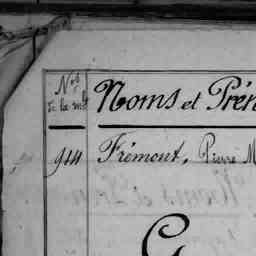 Nos
de la mle
Noms et Prén
944 Frémont, Pierre M
G